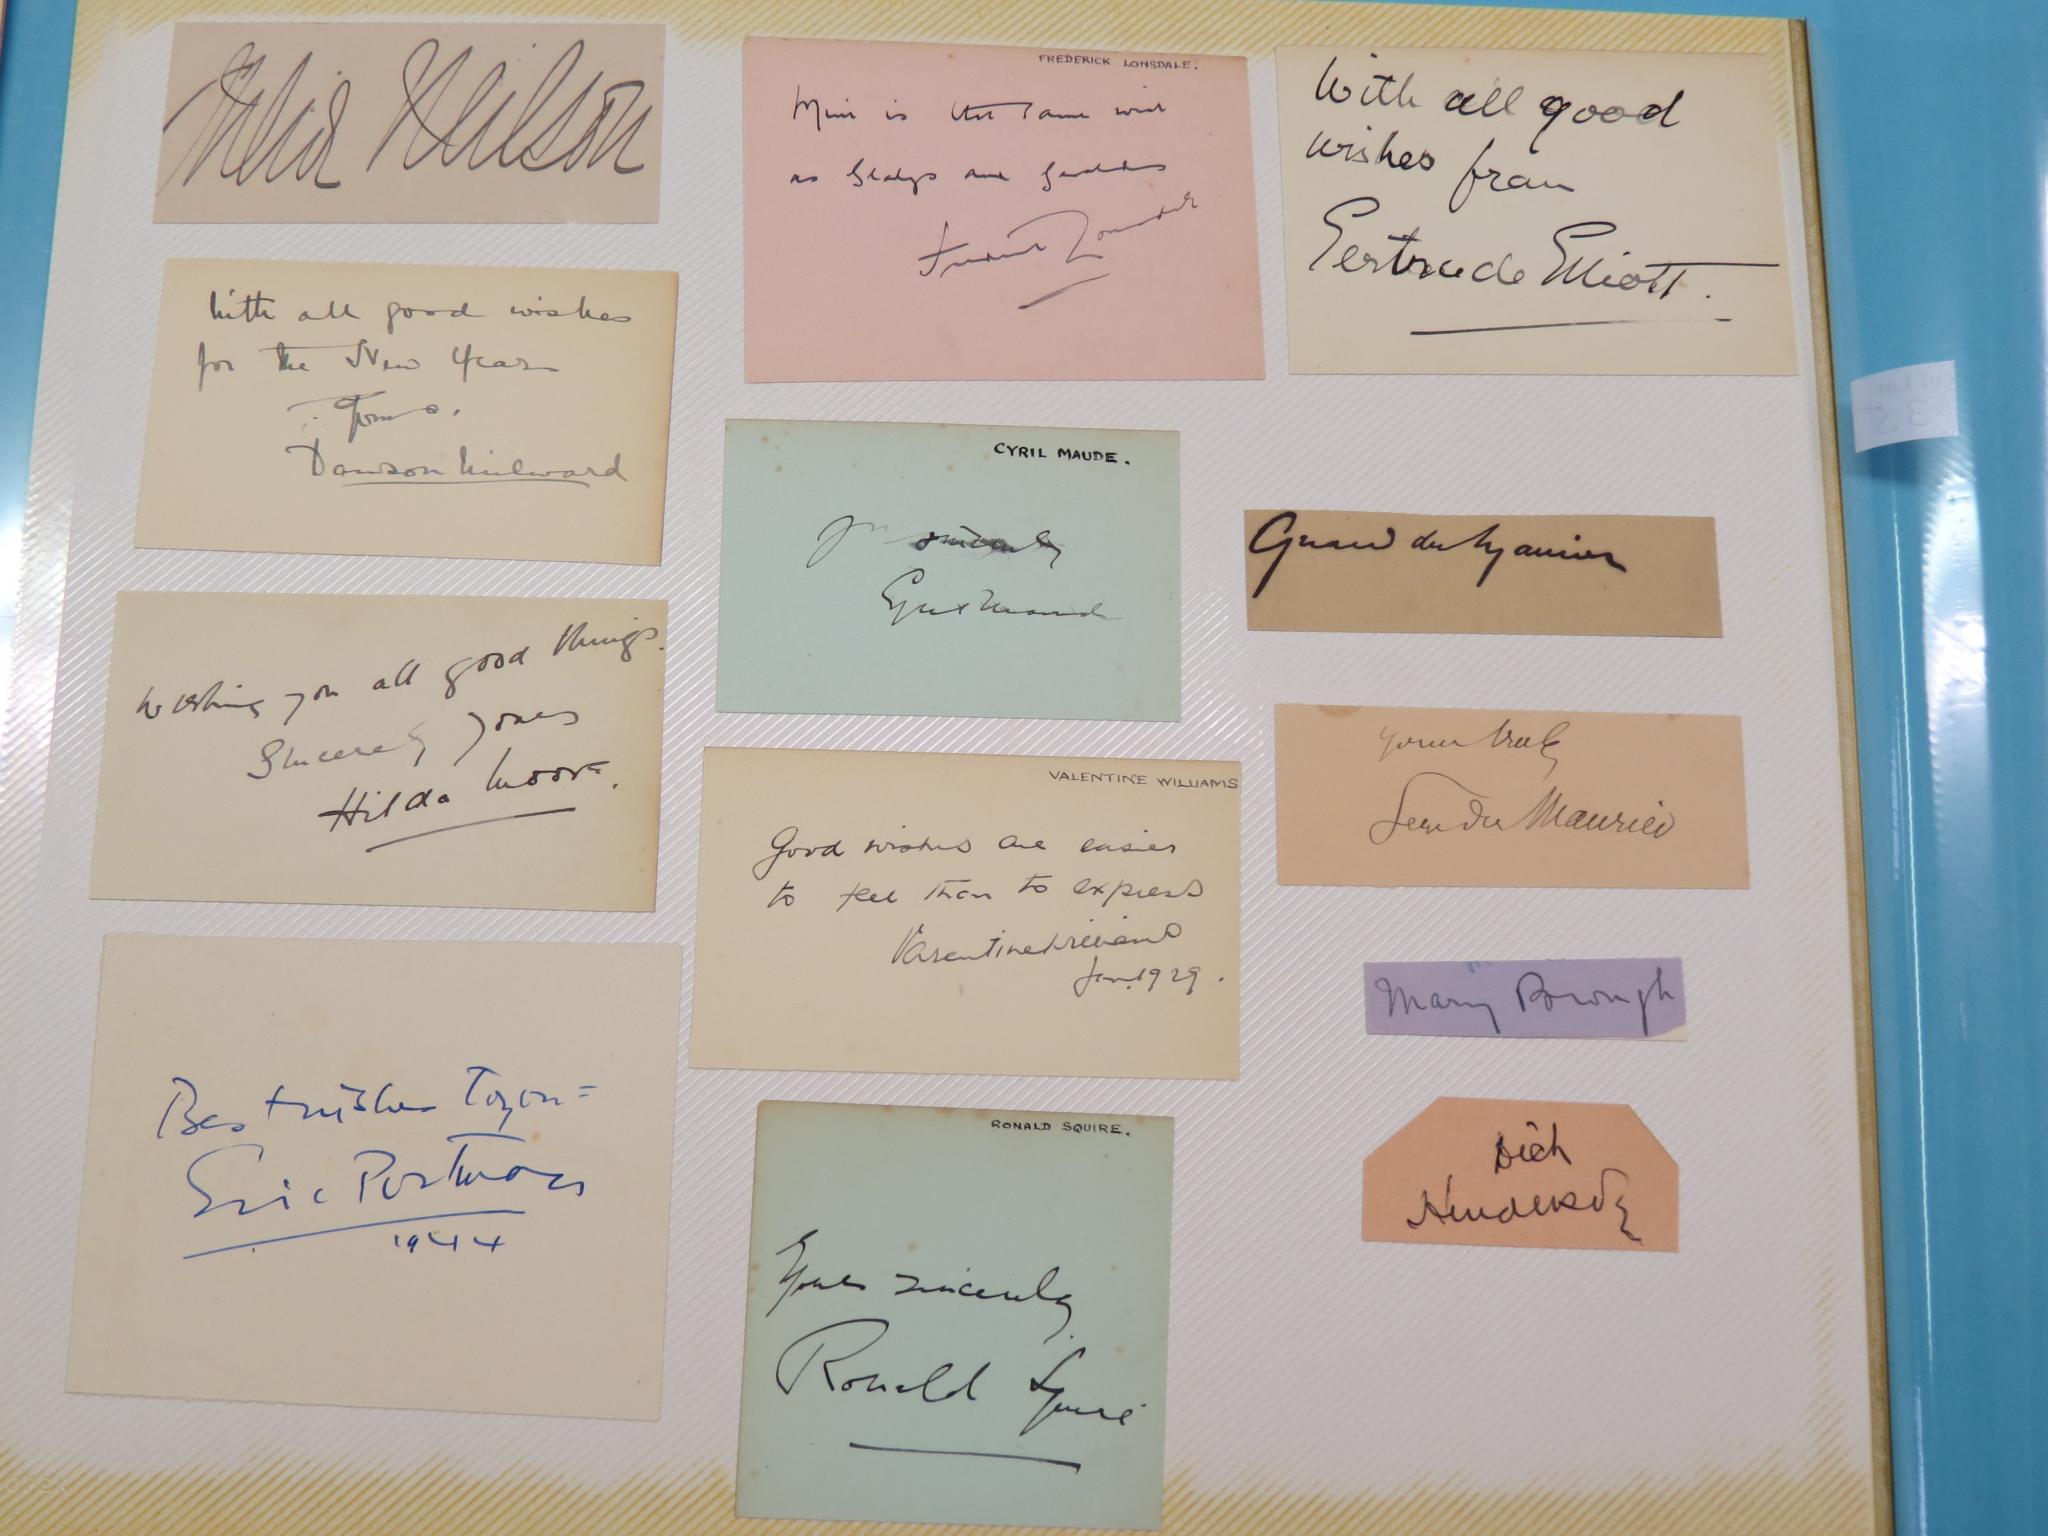 Julia Neilson
With all good wishes
for the New Year
Yours.
Dawson Milward
Wishing you all good things.
Sincerely yours
Hilda Moore.
Best wishes to you =
Eric Portman
1944
FREDERICK LONSDALE.
is that same wish
as Gladys and
CYRIL MAUDE.
sincerely
Cyril Maude
VALENTINE WILLIAMS
Good wishes are easier
to feel than to express
Valentine Williams
Jan. 1929.
RONALD SQUIRE.
Yours sincerely
Ronald Squire
With all good
wishes from
Gertrude Elliott.
Gerald du Maurier
Yours truly
Gerald du Maurier
Mary Brough
Dick
Henderson